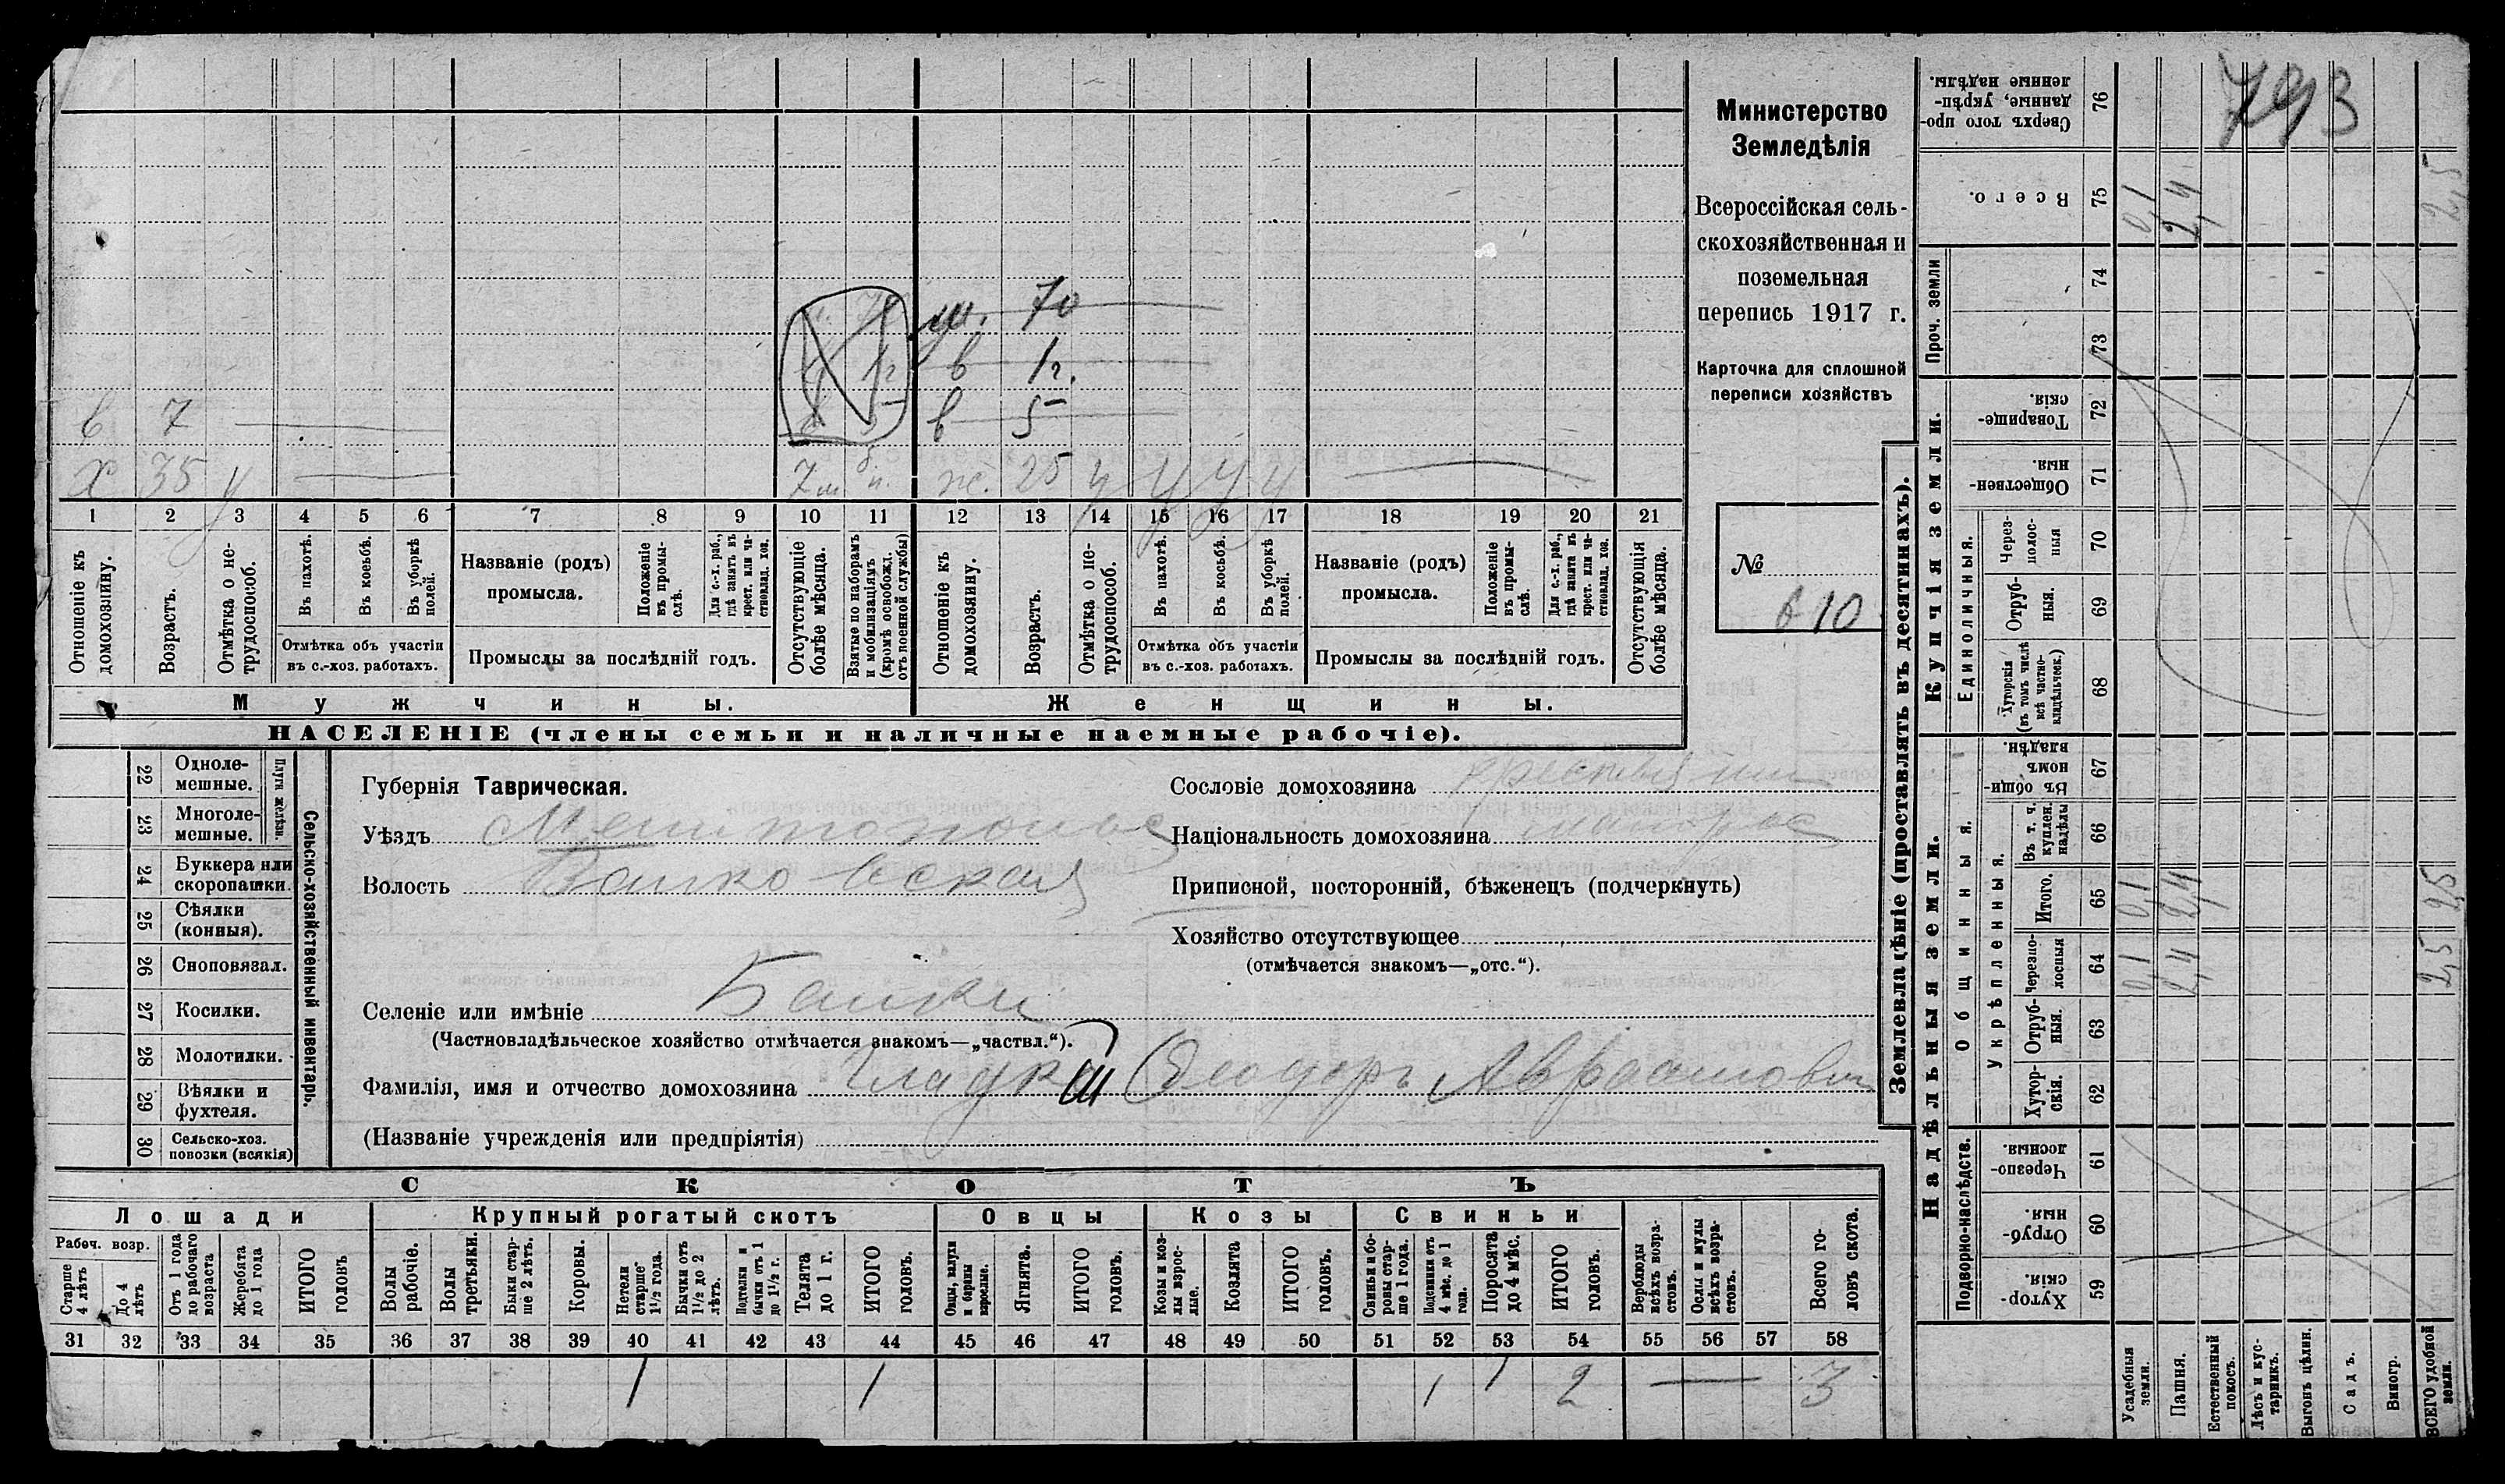 793
Министерство
Земледѣлія
Всероссійская сель-
скохозяйственная и
поземельная
перепись 1917 г.
Карточка для сплошной
переписи хозяйствъ
№
10
ш. 70
в 1 г.
в 7
в 5
х 35 у
ж. 25 у у у у
1 2 3 4 5 6 7 8 9 10 11 12 13 14 15 16 17 18 19 20 21
Отношеніе къ домохозяину.
Возрастъ.
Отмѣтка о не-трудоспособ.
Въ пахотѣ.
Въ косьбѣ.
Въ уборкѣ полей.
Отмѣтка объ участіи
въ с.-хоз. работахъ.
Названіе (родъ)
промысла.
Положеніе въ промы-слѣ.
Для с.-х. раб., гдѣ занятъ въ крест. или ча-стновлад. хоз.
Промыслы за послѣдній годъ.
Отсутствующіе болѣе мѣсяца.
Взятые по наборамъ и мобилизаціямъ (кромѣ освобожд. отъ военной службы)
Отношеніе къ домохозяину.
Возрастъ.
Отмѣтка о не-трудоспособ.
Въ пахотѣ.
Въ косьбѣ.
Въ уборкѣ полей.
Отмѣтка объ участіи
въ с.-хоз. работахъ.
Названіе (родъ)
промысла.
Положеніе въ промы-слѣ.
Для с.-х. раб., гдѣ занята въ крест. или ча-стновлад. хоз.
Промыслы за послѣдній годъ.
Отсутствующія болѣе мѣсяца.
Мужчины.
Женщины.
НАСЕЛЕНІЕ (члены семьи и наличные наемные рабочіе).
22 Одноле-мешные.
23 Многоле-мешные.
Плуги желѣзн.
24 Буккера или скоропашки.
25 Сѣялки (конныя).
26 Сноповязал.
27 Косилки.
28 Молотилки.
29 Вѣялки и фухтеля.
30 Сельско-хоз. повозки (всякія)
Сельско-хозяйственный инвентарь.
Губернія Таврическая.
Уѣздъ Мелитопольс
Волость
Селеніе или имѣніе Балки
(Частновладѣльческое хозяйство отмѣчается знакомъ—„частвл.“).
Фамилія, имя и отчество домохозяина Гладкій Ѳеодоръ Авраамович
(Названіе учрежденія или предпріятія)
Сословіе домохозяина крестьянин
Національность домохозяина малорос
Приписной, посторонній, бѣженецъ (подчеркнуть)
Хозяйство отсутствующее
(отмѣчается знакомъ—„отс.“).
СКОТЪ
Лошади
Крупный рогатый скотъ
Овцы
Козы
Свиньи
Рабоч. возр.
Старше 4 лѣтъ
До 4 лѣтъ
Отъ 1 года до рабочаго возраста
Жеребята до 1 года
ИТОГО головъ
Волы рабочіе.
Волы третьяки.
Быки стар-ше 2 лѣтъ.
Коровы.
Нетели старше 1½ года.
Бычки отъ 1½ до 2 лѣтъ.
Подтелки и бычки отъ 1 до 1½ г.
Телята до 1 г.
ИТОГО головъ.
Овцы, валухи и бараны взрослые.
Ягнята.
ИТОГО головъ.
Козы и коз-лы взрос-лые.
Козлята
ИТОГО головъ.
Свиньи и бо-ровы стар-ше 1 года.
Подсвинки отъ 4 мѣс. до 1 года.
Поросята до 4 мѣс.
ИТОГО головъ.
Верблюды всѣхъ возра-стовъ.
Ослы и мулы всѣхъ возра-стовъ.
Всего го-ловъ скота.
31 32 33 34 35 36 37 38 39 40 41 42 43 44 45 46 47 48 49 50 51 52 53 54 55 56 57 58
1 1 1 1 2 — 3
Землевладѣніе (проставлять въ десятинахъ).
Сверхъ того про-данные, укрѣп-ленные надѣлы. 76
Всего. 75 0,1 2,4 2,5
Проч. земли 74 73
Купчія земли.
Товарище-скія. 72
Обществен-ныя. 71
Единоличныя.
Через-полос-ныя 70
Отруб-ныя. 69
Хуторскія (въ томъ числѣ всѣ частно-владѣльческ.) 68
Надѣльныя земли.
Общинныя.
Въ общин-номъ владѣн. 67
Укрѣпленныя.
Въ т. ч. куплен. надѣлы 66
Итого. 65 0,1 2,4 2,5
Черезпо-лосныя 64 0,1 2,4 2,5
Отруб-ныя. 63
Хутор-скія. 62
Подворно-наслѣдств.
Черезпо-лосныя. 61
Отруб-ныя. 60
Хутор-скія. 59
Усадебныя земли.
Пашня.
Естественный покосъ.
Лѣсъ и кус-тарникъ.
Выгонъ цѣлин.
Садъ.
Виногр.
ВСЕГО удобной земли.